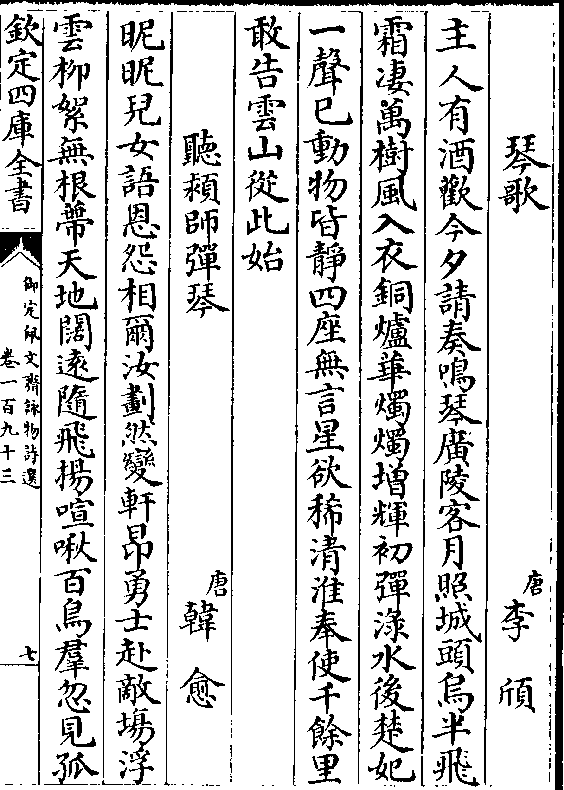 琴歌
唐李頎
主人有酒歡今夕請奏鳴琴廣陵客月照城頭烏半飛
霜凄萬樹風入衣銅爐華燭燭增輝初彈淥水後楚妃
一聲已動物皆靜四座無言星欲稀清淮奉使千餘里
敢告雲山從此始
聽穎師彈琴
唐韓愈
昵昵兒女語恩怨相爾汝劃然變軒昂勇士赴敵場浮
雲柳絮無根蔕天地闊遠隨飛揚喧啾百鳥羣忽見孤
欽定四庫全書
御定佩文齋詠物詩選
卷一百九十三
七